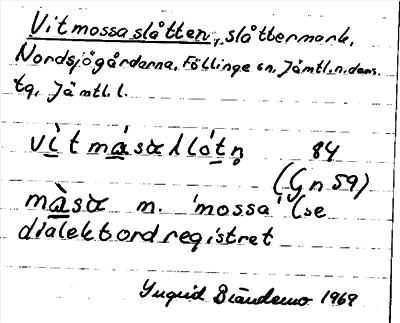 Vitmossaslåtten, slåttermark,
Nordsjögårdarna, Föllinge sn, Jämtl.n.doms.
tg, Jämtl.l.
vı̀t másαllótn̥ 84
(Gn 59)
màsα m. 'mossa' (se
dialektordregistret
Ingrid Brändemo 1969